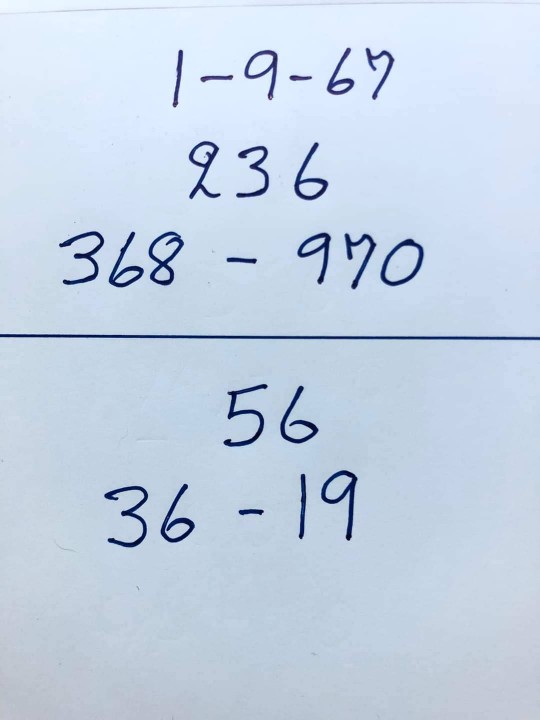 1-9-67
236
368 - 970
56
36 - 19